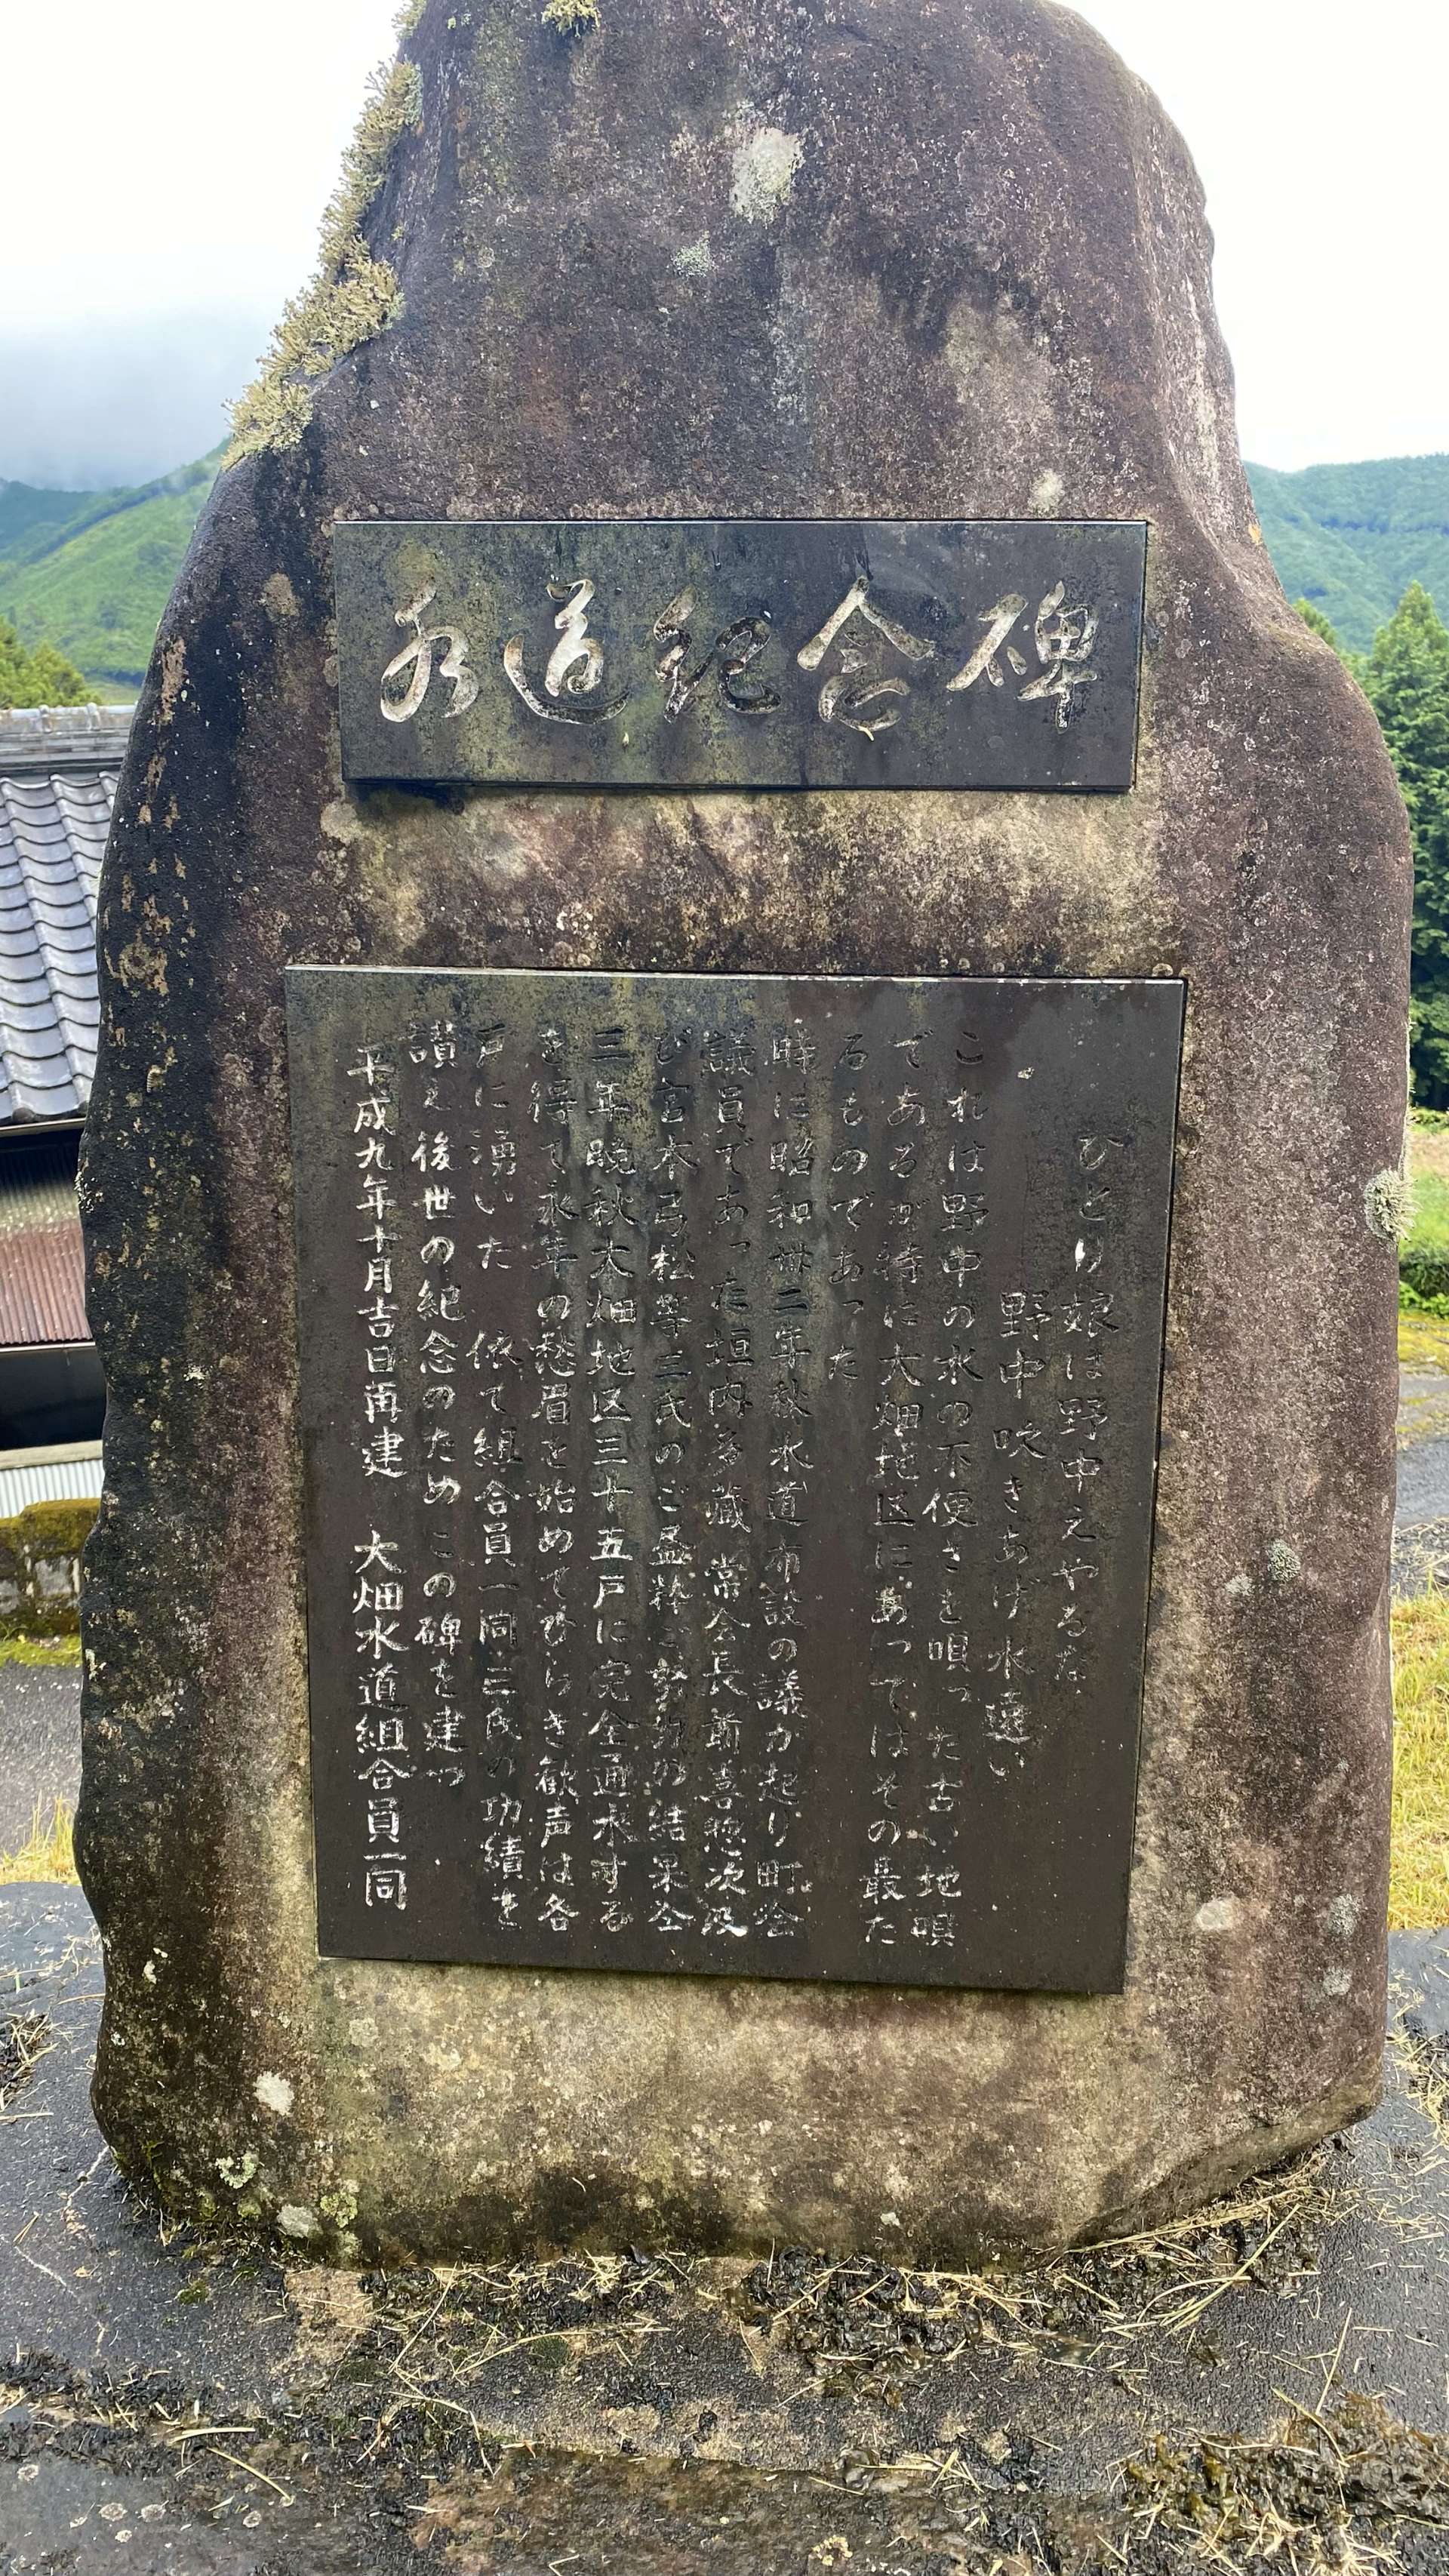 水道紀念碑
ひとり娘は野中えやるな
野中吹きあげ水遠い
これは野中の水の不便さを唄った古い地唄
であるが特に大畑地区にあつてはその最た
るものであった
時に昭和卅二年秋水道布設の議が起り町会
議員であった垣内多蔵 常会長前喜惣次及
び宮本弓松等三氏のご盡粋ご努力の結果仝
三年晩秋大畑地区三十五戸に完全通水する
を得て永年の愁眉を始めてひらき歓声は各
戸に湧いた 依て組合員一同三氏の功績を
讃え後世の紀念のためこの碑を建つ
平成九年十月吉日再建 大畑水道組合員一同